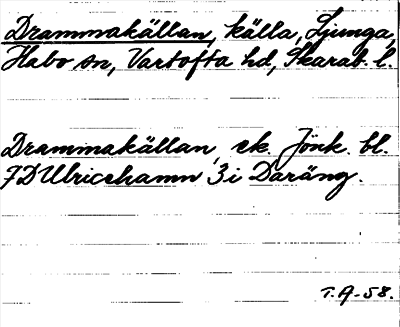 Drammakällan, källa, Ljunga,
Habo sn, Vartofta hd, Skarab. l.
Drammakällan, ek. Jönk. bl.
7D Ulricehamn 3i Daräng.
T.A-58.